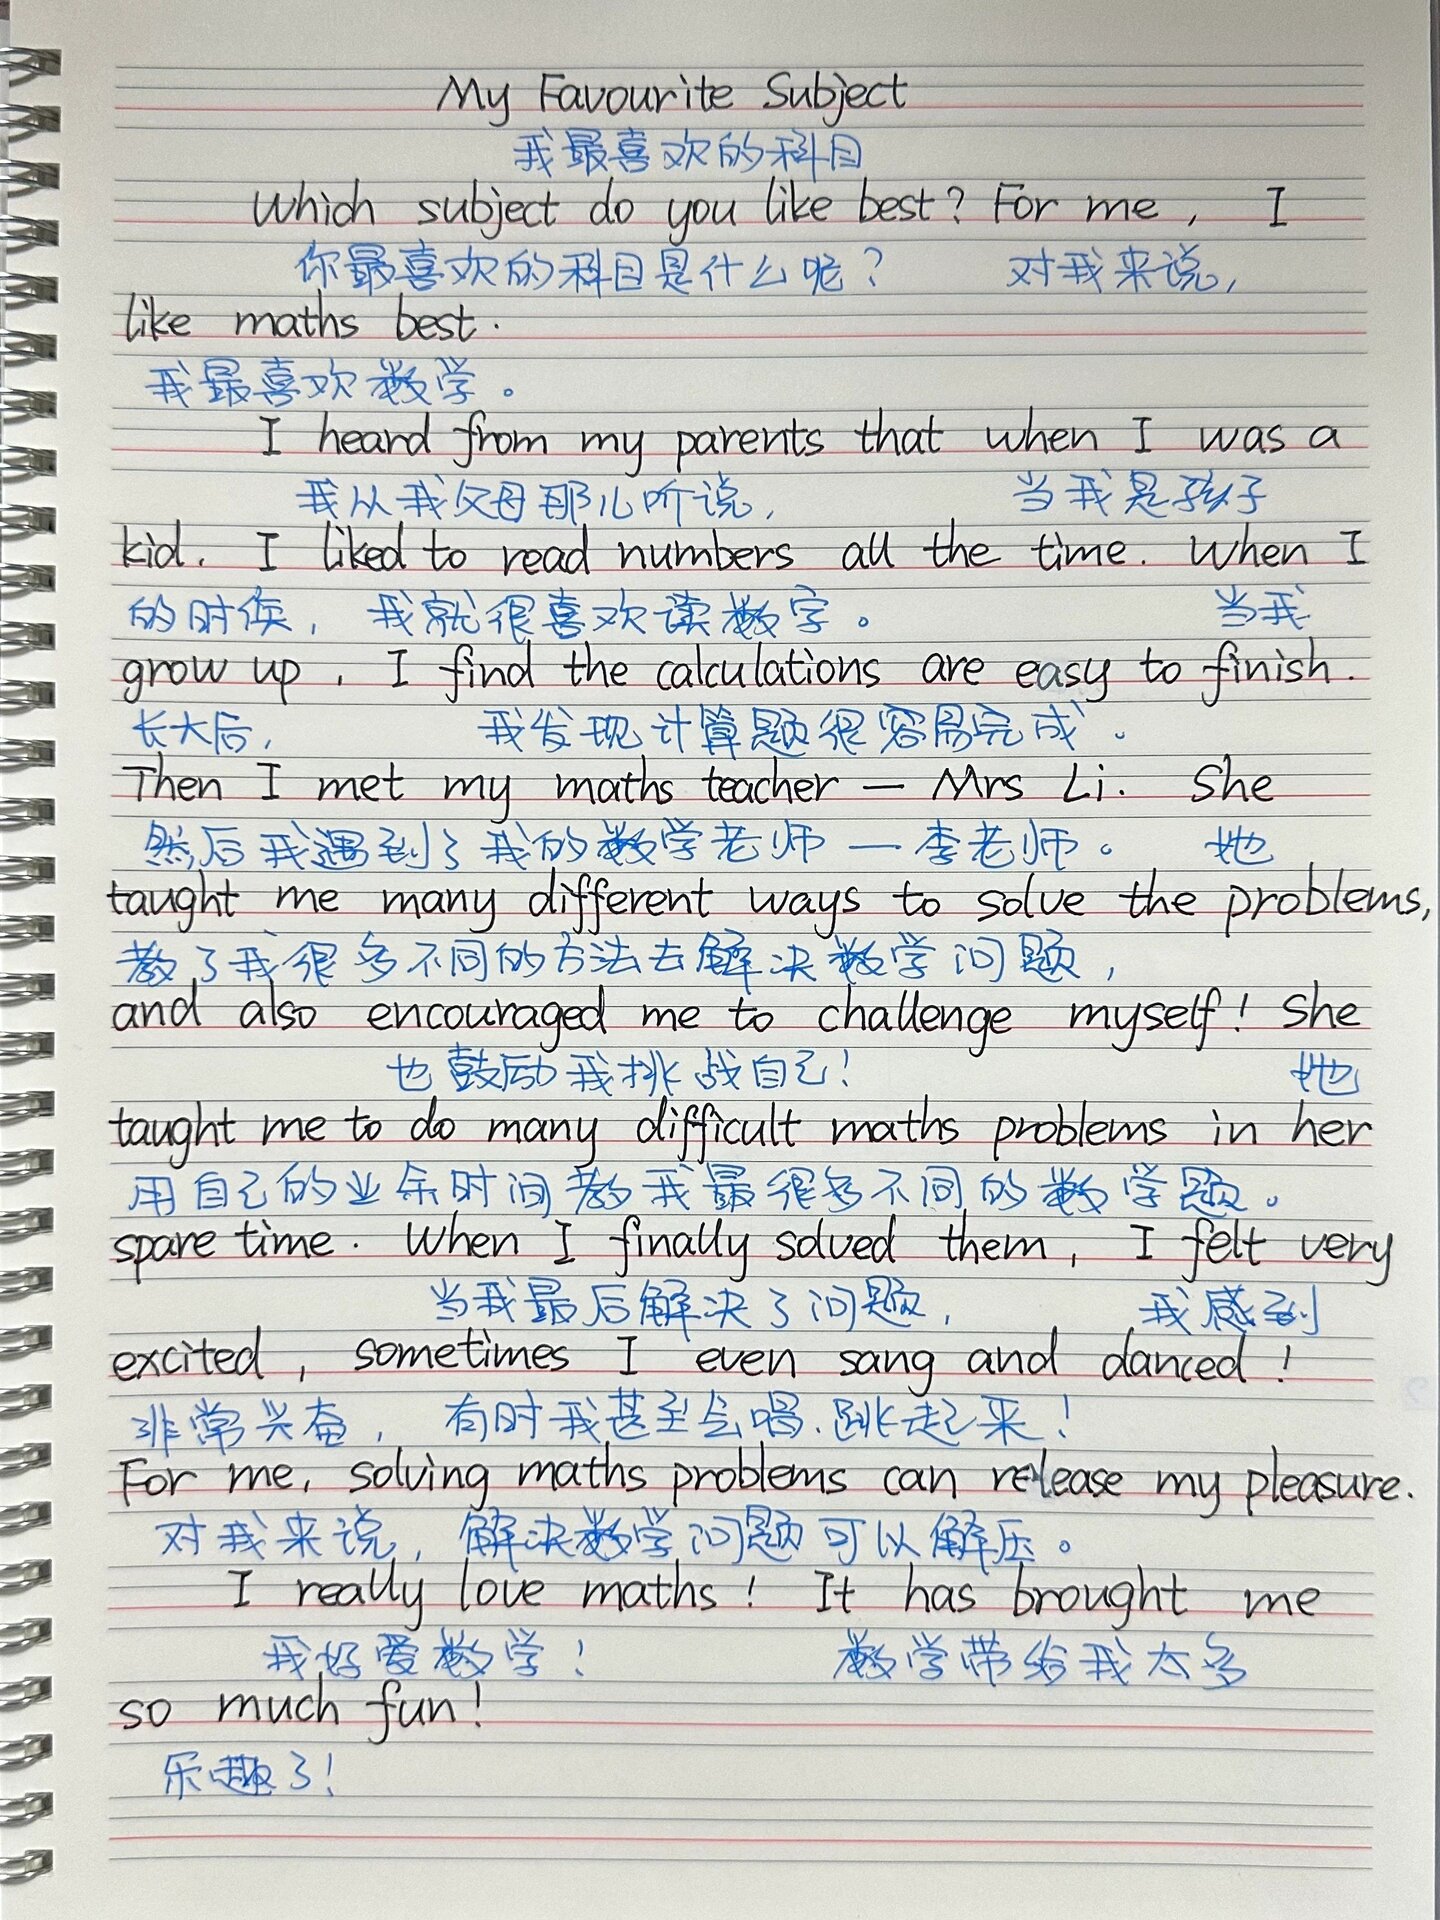 My Favourite Subject
我最喜欢的科目
Which subject do you like best? For me, I
你最喜欢的科目是什么呢? 对我来说,
like maths best.
我最喜欢数学。
I heard from my parents that when I was a
我从我父母那儿听说, 当我是孩子
kid. I liked to read numbers all the time. When I
的时侯, 我就很喜欢读数字。 当我
grow up, I find the calculations are easy to finish.
长大后, 我发现计算题很容易完成。
Then I met my maths teacher — Mrs Li. She
然后我遇到了我的数学老师 — 李老师。 她
taught me many different ways to solve the problems,
教了我很多不同的方法去解决数学问题,
and also encouraged me to challenge myself! She
也鼓励我挑战自己! 她
taught me to do many difficult maths problems in her
用自己的业余时间教我最很多不同的数学题。
spare time. When I finally solved them, I felt very
当我最后解决了问题, 我感到
excited, sometimes I even sang and danced!
非常兴奋, 有时我甚至会唱、跳起来!
For me, solving maths problems can release my pleasure.
对我来说, 解决数学问题可以解压。
I really love maths! It has brought me
我好爱数学! 数学带给我太多
so much fun!
乐趣了!